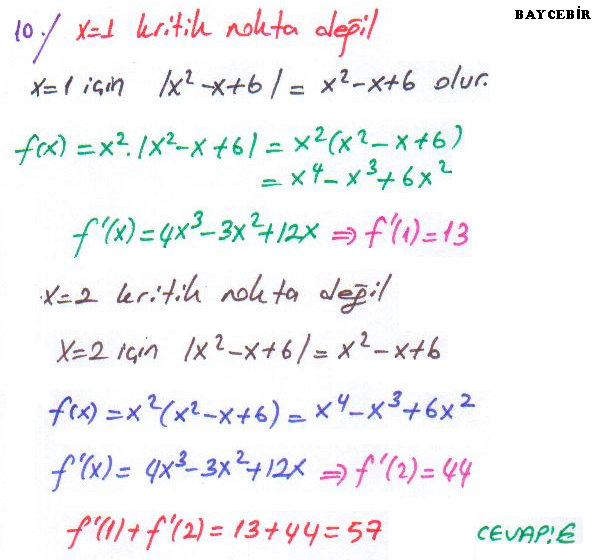 BAYCEBİR
10./ x=1 kritik nokta değil
x=1 için |x²-x+6| = x²-x+6 olur.
f(x) = x².|x²-x+6| = x²(x²-x+6)
= x⁴-x³+6x²
f'(x) = 4x³-3x²+12x ⇒ f'(1)=13
x=2 kritik nokta değil
x=2 için |x²-x+6| = x²-x+6
f(x) = x²(x²-x+6) = x⁴-x³+6x²
f'(x) = 4x³-3x²+12x ⇒ f'(2)=44
f'(1)+f'(2) = 13+44 = 57 CEVAP:E